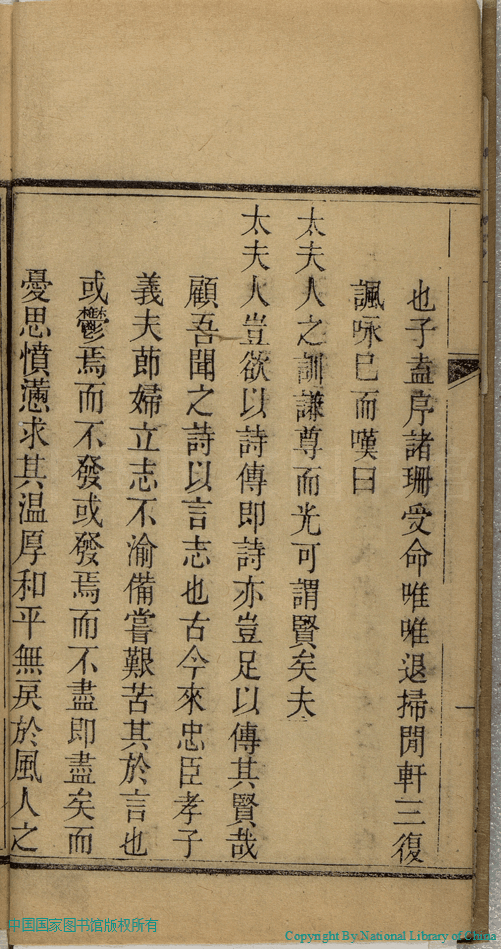 也子盍序諸珊受命唯唯退掃閒軒三復
諷咏已而嘆曰
太夫人之訓謙尊而光可謂賢矣夫
太夫人豈欲以詩傳即詩亦豈足以傳其賢哉
顧吾聞之詩以言志也古今來忠臣孝子
義夫節婦立志不渝備嘗艱苦其於言也
或鬱焉而不發或發焉而不盡即盡矣而
憂思憤懣求其温厚和平無戾於風人之
中国国家图书馆版权所有
Copyright By National Library of China